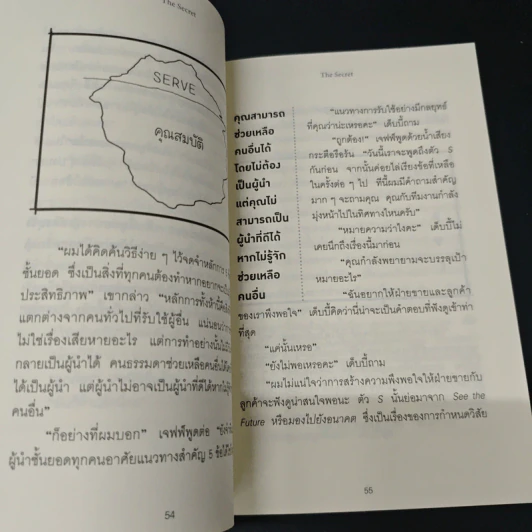 The Secret
SERVE
คุณสมบัติ
"ผมได้คิดค้นวิธีง่าย ๆ ไว้จดจำหลักการ
ชั้นยอด ซึ่งเป็นสิ่งที่ทุกคนต้องทำหากอยาก
ประสิทธิภาพ" เขากล่าว "หลักการทั้งห้านี้
แตกต่างจากคนทั่วไปที่รับใช้ผู้อื่น แน่นอน
ไม่ใช่เรื่องเสียหายอะไร แต่การทำอย่างนั้น
กลายเป็นผู้นำได้ คนธรรมดาช่วยเหลือคนอื่นได้
ได้เป็นผู้นำ แต่ผู้นำไม่อาจเป็นผู้นำที่ดีได้หาก
คนอื่น"
"ก็อย่างที่ผมบอก" เจฟฟ์พูดต่อ
ผู้นำชั้นยอดทุกคนอาศัยแนวทางสำคัญ 5 ข้อ
54
The Secret
คุณสามารถ
ช่วยเหลือ
คนอื่นได้
โดยไม่ต้อง
เป็นผู้นำ
แต่คุณไม่
สามารถเป็น
ผู้นำที่ดีได้
หากไม่รู้จัก
ช่วยเหลือ
คนอื่น
"แนวทางการรับใช้อย่างมีกลยุทธ์
ที่คุณว่าน่ะเหรอคะ" เด็บบี้ถาม
"ถูกต้อง!" เจฟฟ์พูดด้วยน้ำเสียง
กระตือรือร้น "วันนี้เราจะพูดถึงตัว S
กันก่อน จากนั้นค่อยไล่เรียงข้อที่เหลือ
ในครั้งต่อ ๆ ไป ทีนี้ผมมีคำถามสำคัญ
มาก ๆ จะถามคุณ คุณกับทีมงานกำลัง
มุ่งหน้าไปในทิศทางไหนครับ"
"หมายความว่าไงคะ" เด็บบี้ไม่
เคยนึกถึงเรื่องนี้มาก่อน
"คุณกำลังพยายามจะบรรลุเป้า
หมายอะไร"
"ฉันอยากให้ฝ่ายขายและลูกค้า
ของเราพึงพอใจ" เด็บบี้คิดว่านี่น่าจะเป็นคำตอบที่ฟังดูเข้าท่า
ที่สุด
"แค่นั้นเหรอ"
"ยังไม่พอเหรอคะ" เด็บบี้ถาม
"ผมไม่แน่ใจว่าการสร้างความพึงพอใจให้ฝ่ายขายกับ
ลูกค้าจะฟังดูน่าสนใจพอนะ ตัว S นั้นย่อมาจาก See the
Future หรือมองไปยังอนาคต ซึ่งเป็นเรื่องของการกำหนดวิสัย
55